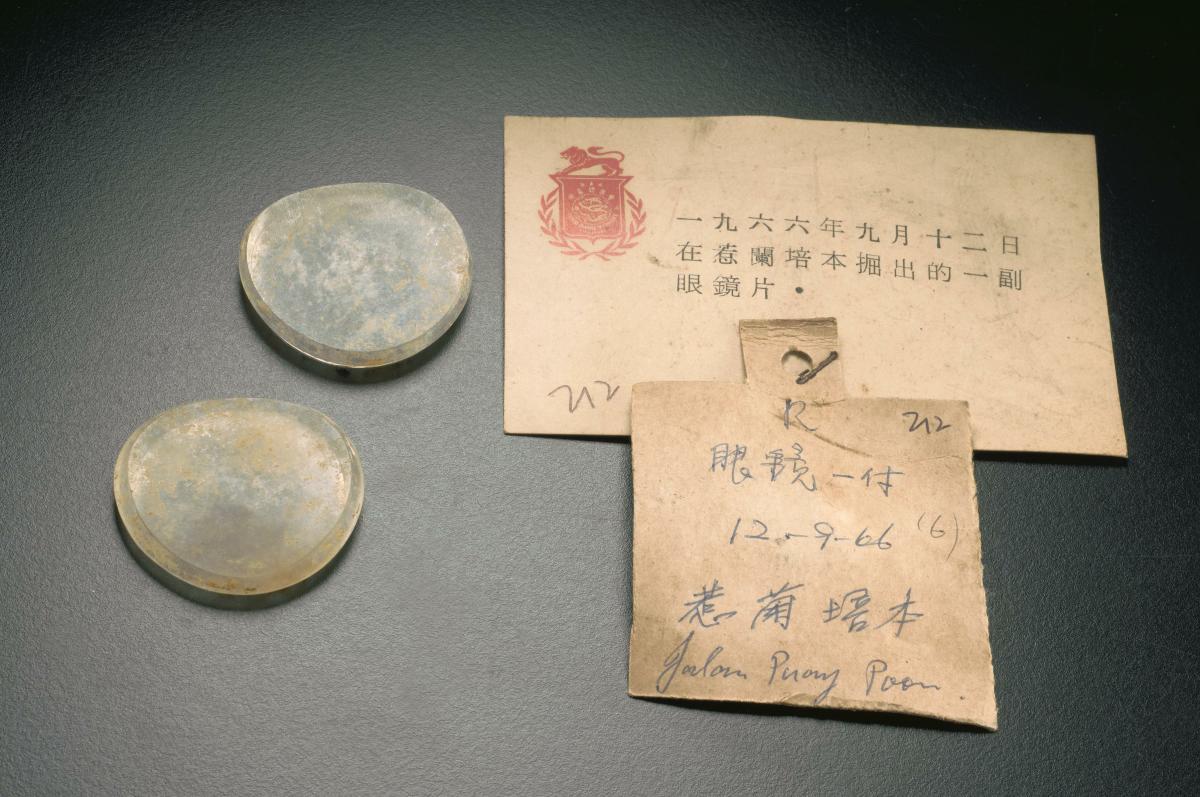 一九六六年九月十二日
在惹蘭培本掘出的一副
眼鏡片．
212
R
212
眼鏡一付
12-9-66 (6)
惹蘭培本
Jalan Puay Poon.